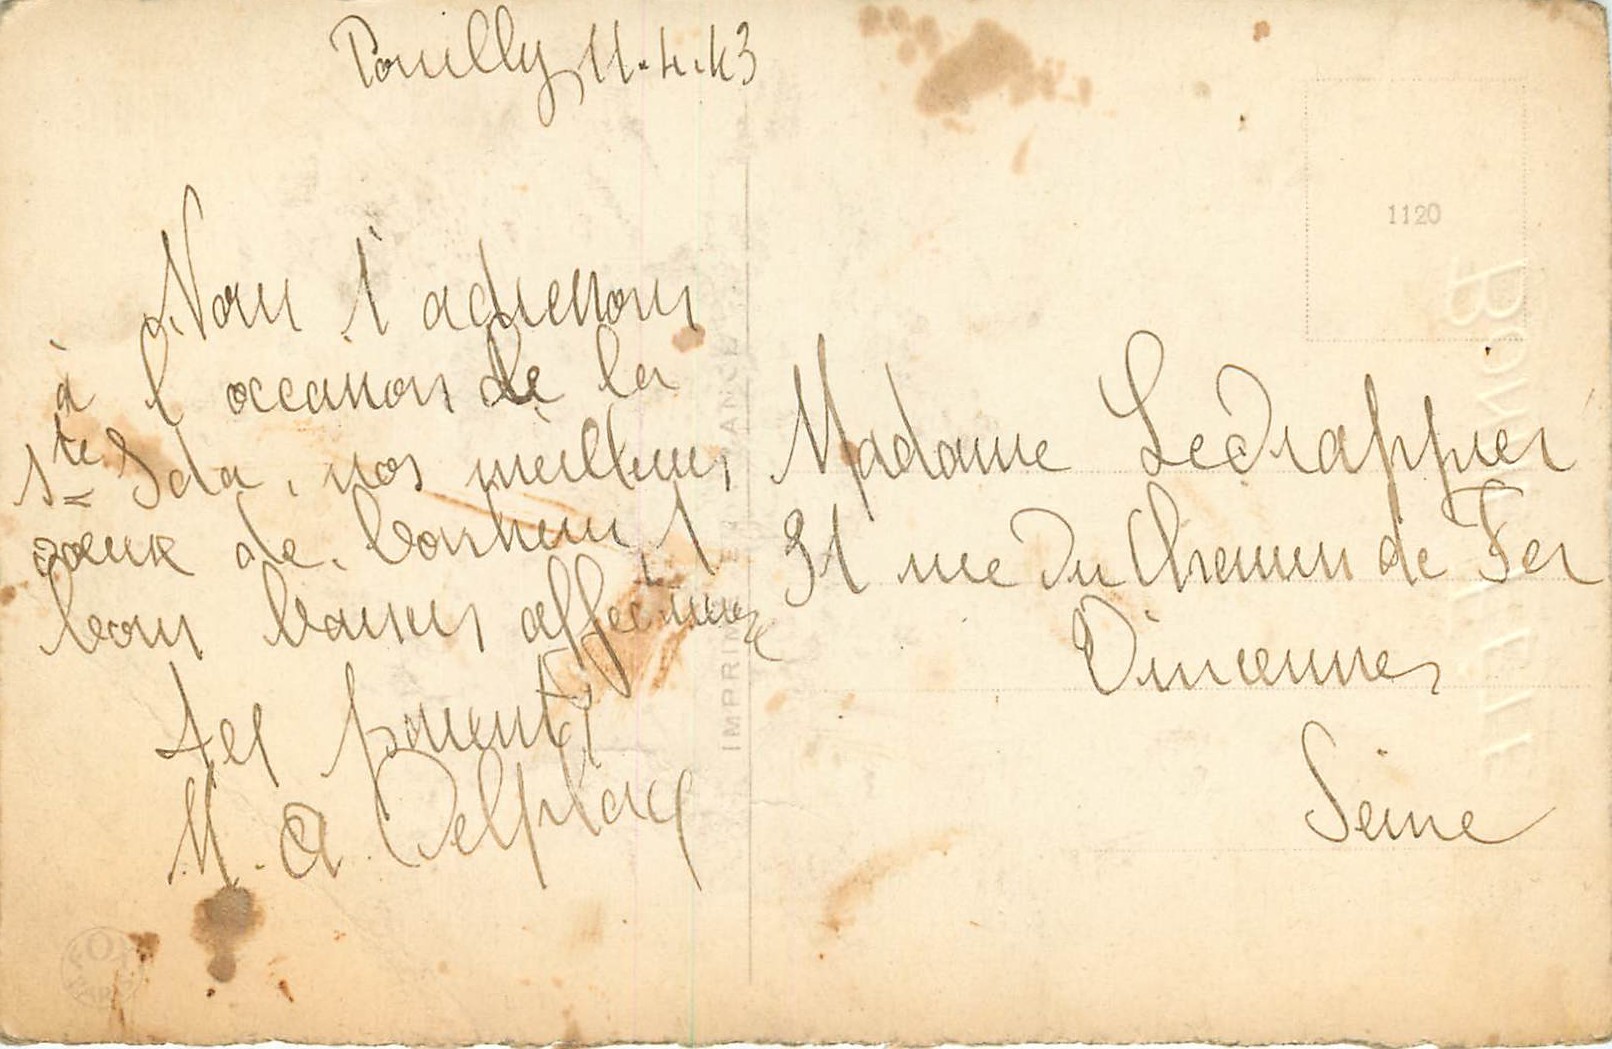 Pouilly 11.4.43
Nous t'adressons
à l'occasion de la
Ste Ida, nos meilleurs
vœux de bonheur et
bons baisers affectueux
tes parents
M. A. Delplace
Madame Ledrappier
31 rue du Chemin de Fer
Vincennes
Seine
1120
BONNE FÊTE
FOX
PARIS